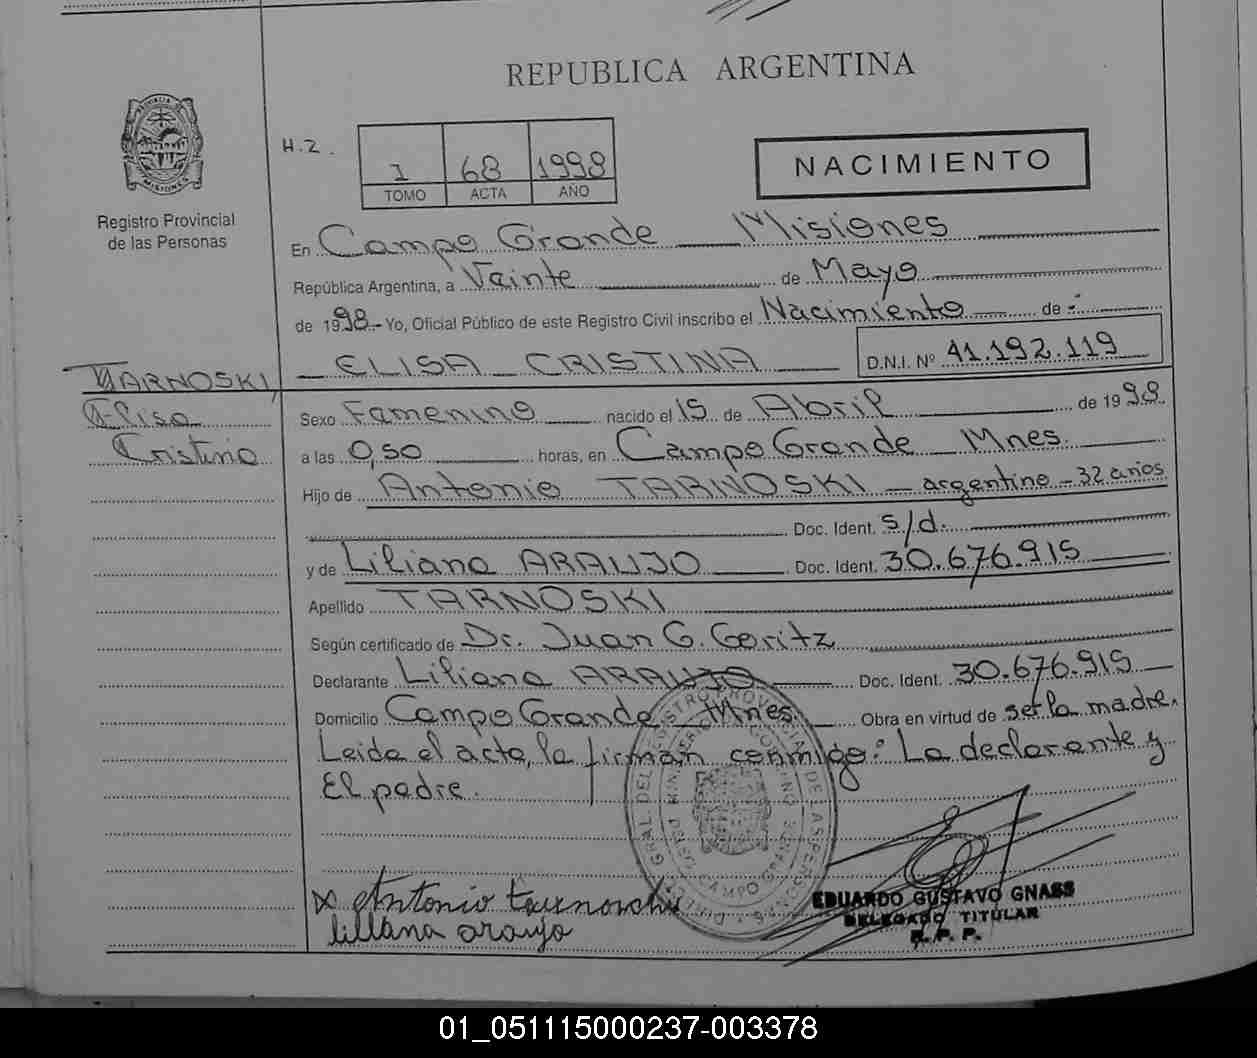 REPUBLICA ARGENTINA
PROVINCIA DE MISIONES
Registro Provincial
de las Personas
H.Z.
1 68 1998
TOMO ACTA AÑO
NACIMIENTO
En Campo Grande Misiones
República Argentina, a Veinte de Mayo
de 1998 - Yo, Oficial Público de este Registro Civil inscribo el Nacimiento de :
ELISA CRISTINA D.N.I. Nº 41.192.119
TARNOSKI,
Elisa
Cristina
Sexo Femenino nacido el 15 de Abril de 1998
a las 0,50 horas, en Campo Grande Mnes.
Hijo de Antonio TARNOSKI - argentino - 32 años
Doc. Ident. s/d.
y de Liliana ARAUJO Doc. Ident. 30.676.915
Apellido TARNOSKI
Según certificado de Dr. Juan G. Goritz
Declarante Liliana ARAUJO Doc. Ident. 30.676.915
Domicilio Campo Grande Mnes. Obra en virtud de ser la madre.
Leida el acta, la firman conmigo: La declarante y
El padre.
x Antonio
liliana araujo
EDUARDO GUSTAVO GNASS
DELEGADO TITULAR
R. P. P.
01_051115000237-003378